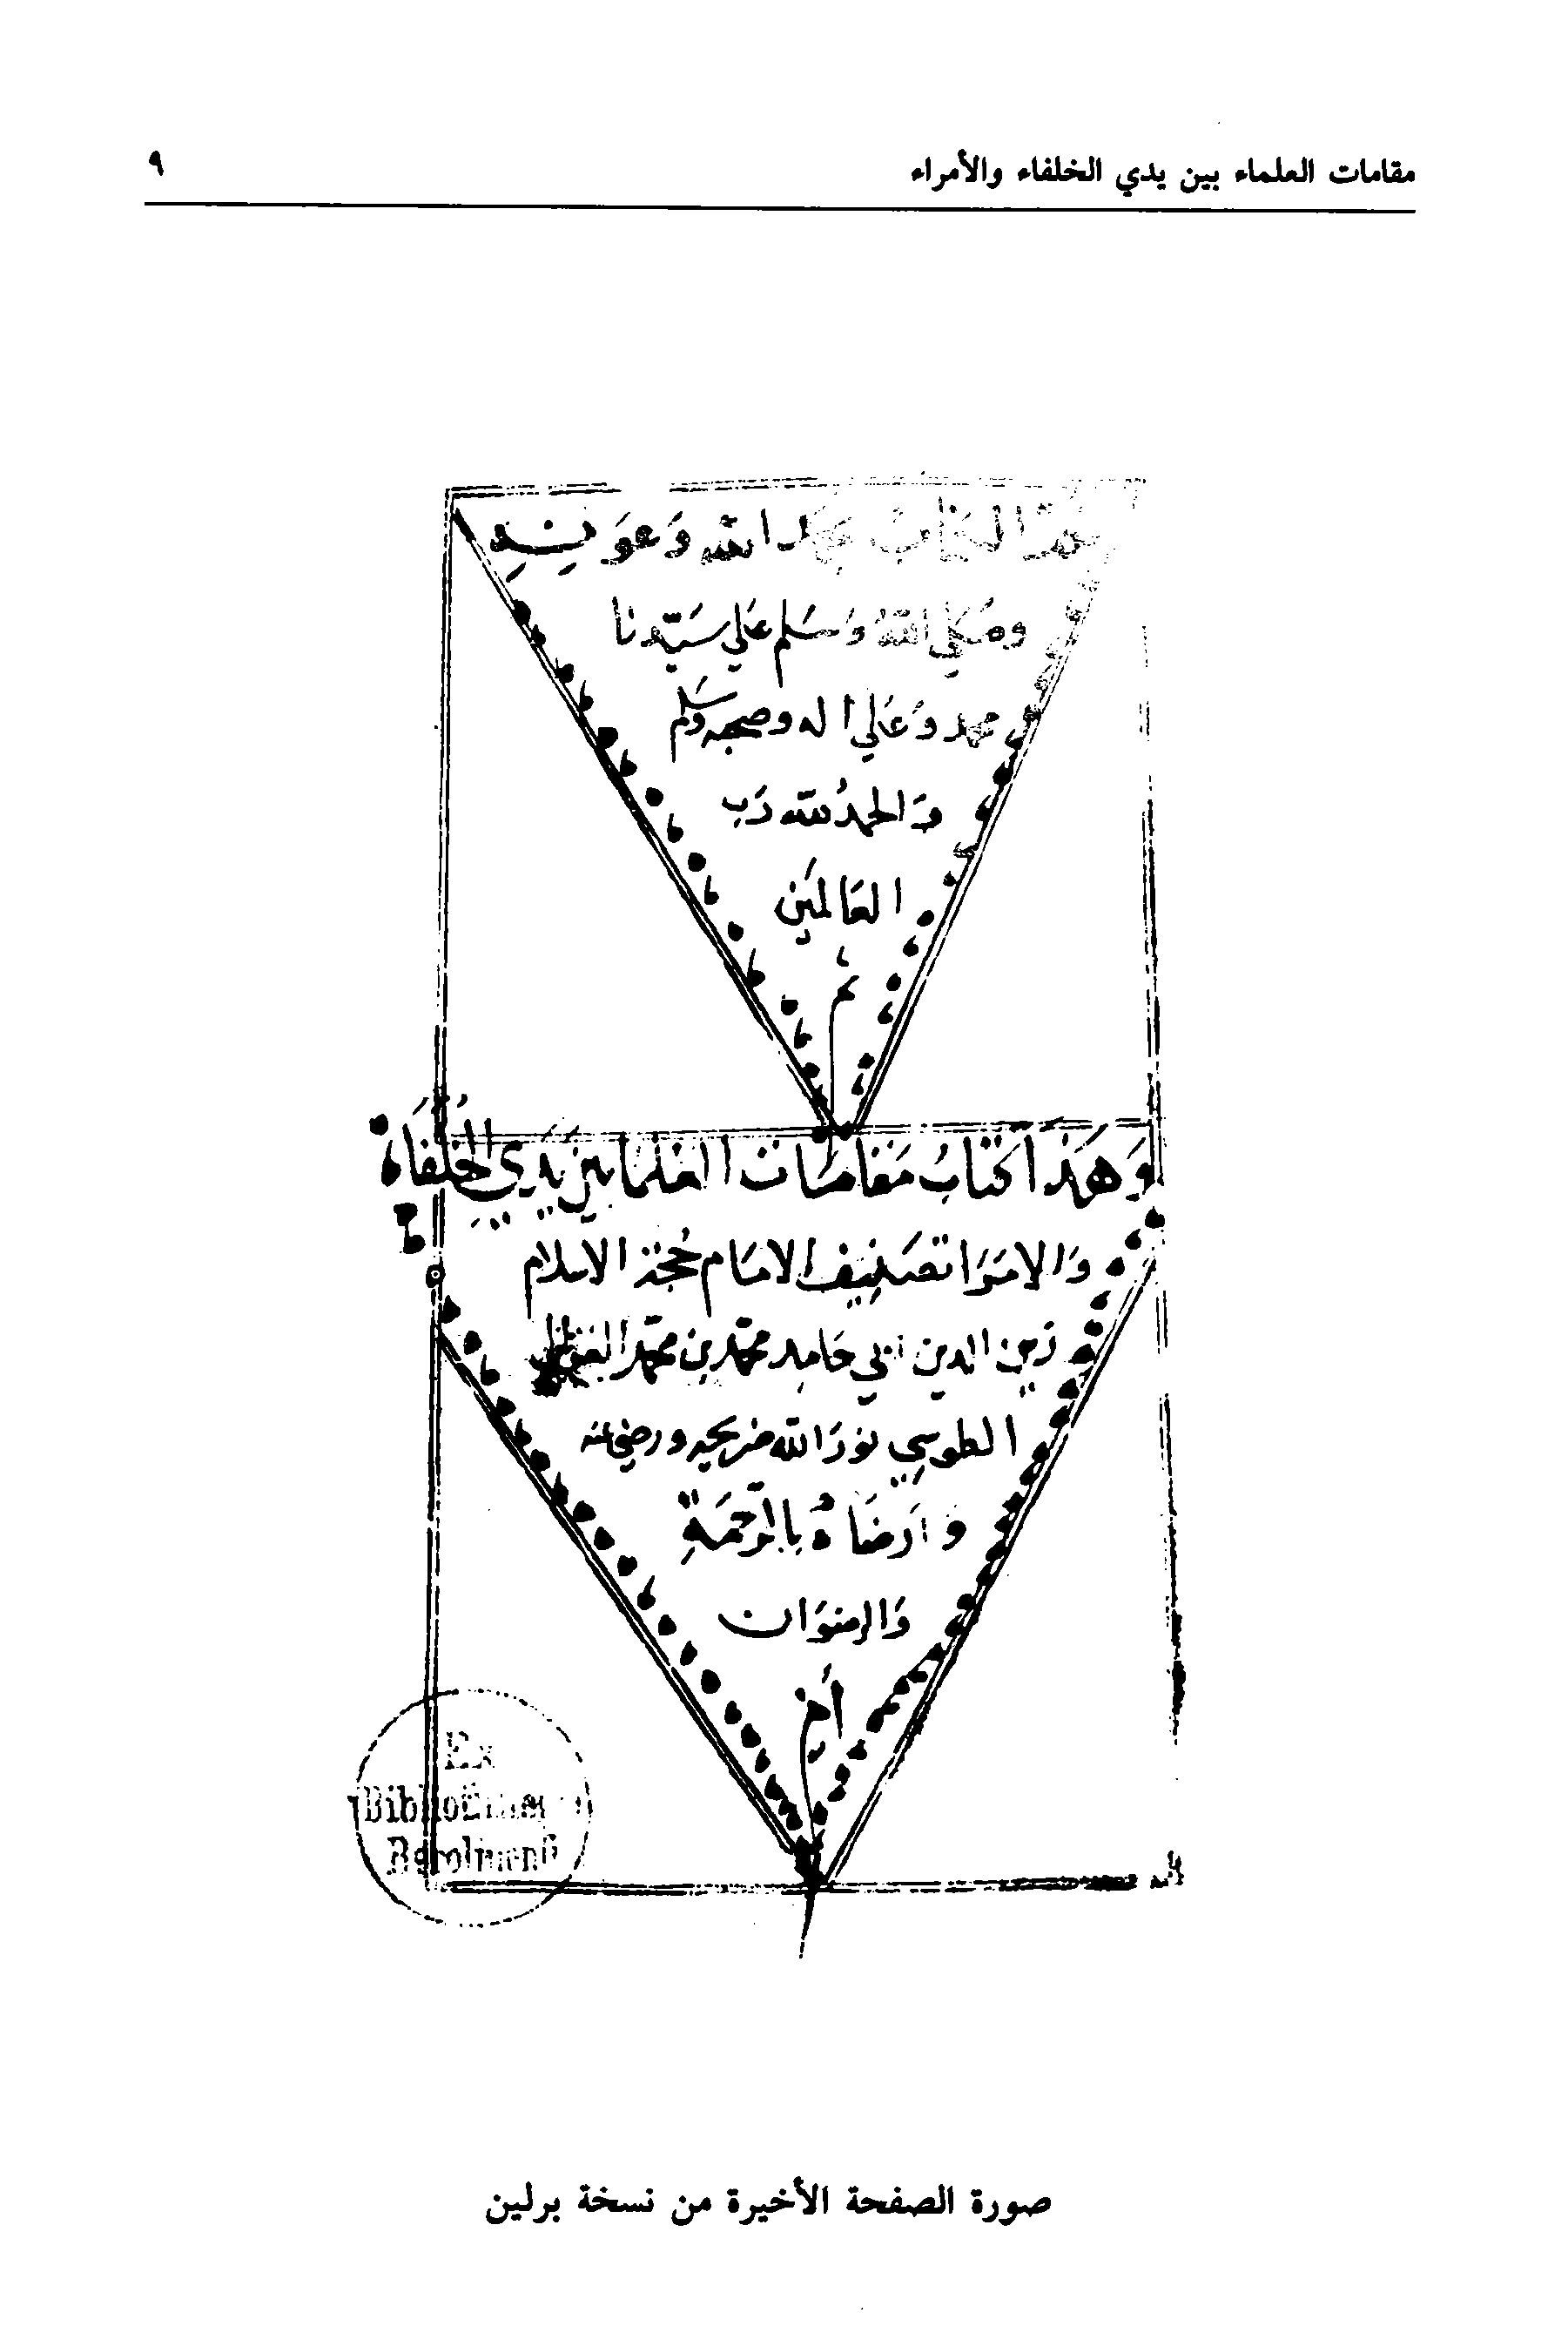 مقامات العلماء بين يدي الخلفاء والأمراء
٩
الكتاب بحمد الله وَعَوْنِهِ
وصَلي الله وَسَلم عَلي سَيّدنا
محمد وَعَلي اله وصحبه وسَلم
وَالحمدُ لله رَب
العَالمَين
تم
وَهَذا كتابُ مَقامَات العلما بين يَدَي الخُلفَاء
وَالامَرَا تصَنيف الامَام حُجّة الاسلام
زين الدين ابي حَامِد محمّد بن محمّد الغزالي
الطوسي نورَ الله ضريحه ورضي عنه
وارضَاهُ بالرّحمَةِ
وَالرضوَان
أمين
Ex
صورة الصفحة الأخيرة من نسخة برلين